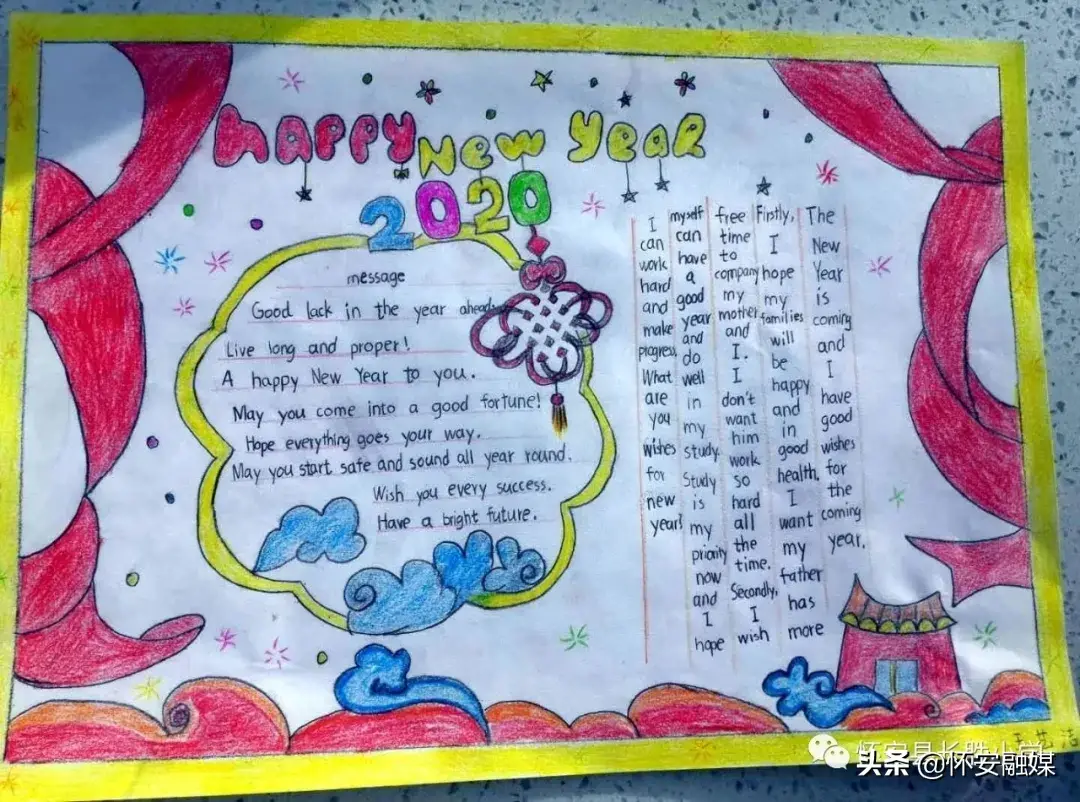 Happy New Year
2020
message
Good lack in the year ahead
Live long and proper!
A happy New Year to you.
May you come into a good fortune!
Hope everything goes your way.
May you start safe and sound all year round.
Wish you every success.
Have a bright future.
The New Year is coming and I have good wishes for the coming year.
Firstly, I hope my families will be happy and in good health. I want my father has more
free time to company my mother and I. I don't want him work so hard all the time. Secondly, I wish
myself can have a good year and do well in my study. Study is my priority now and I hope
I can work hard and make progress. What are you wishes for new year?
头条 @怀安融媒